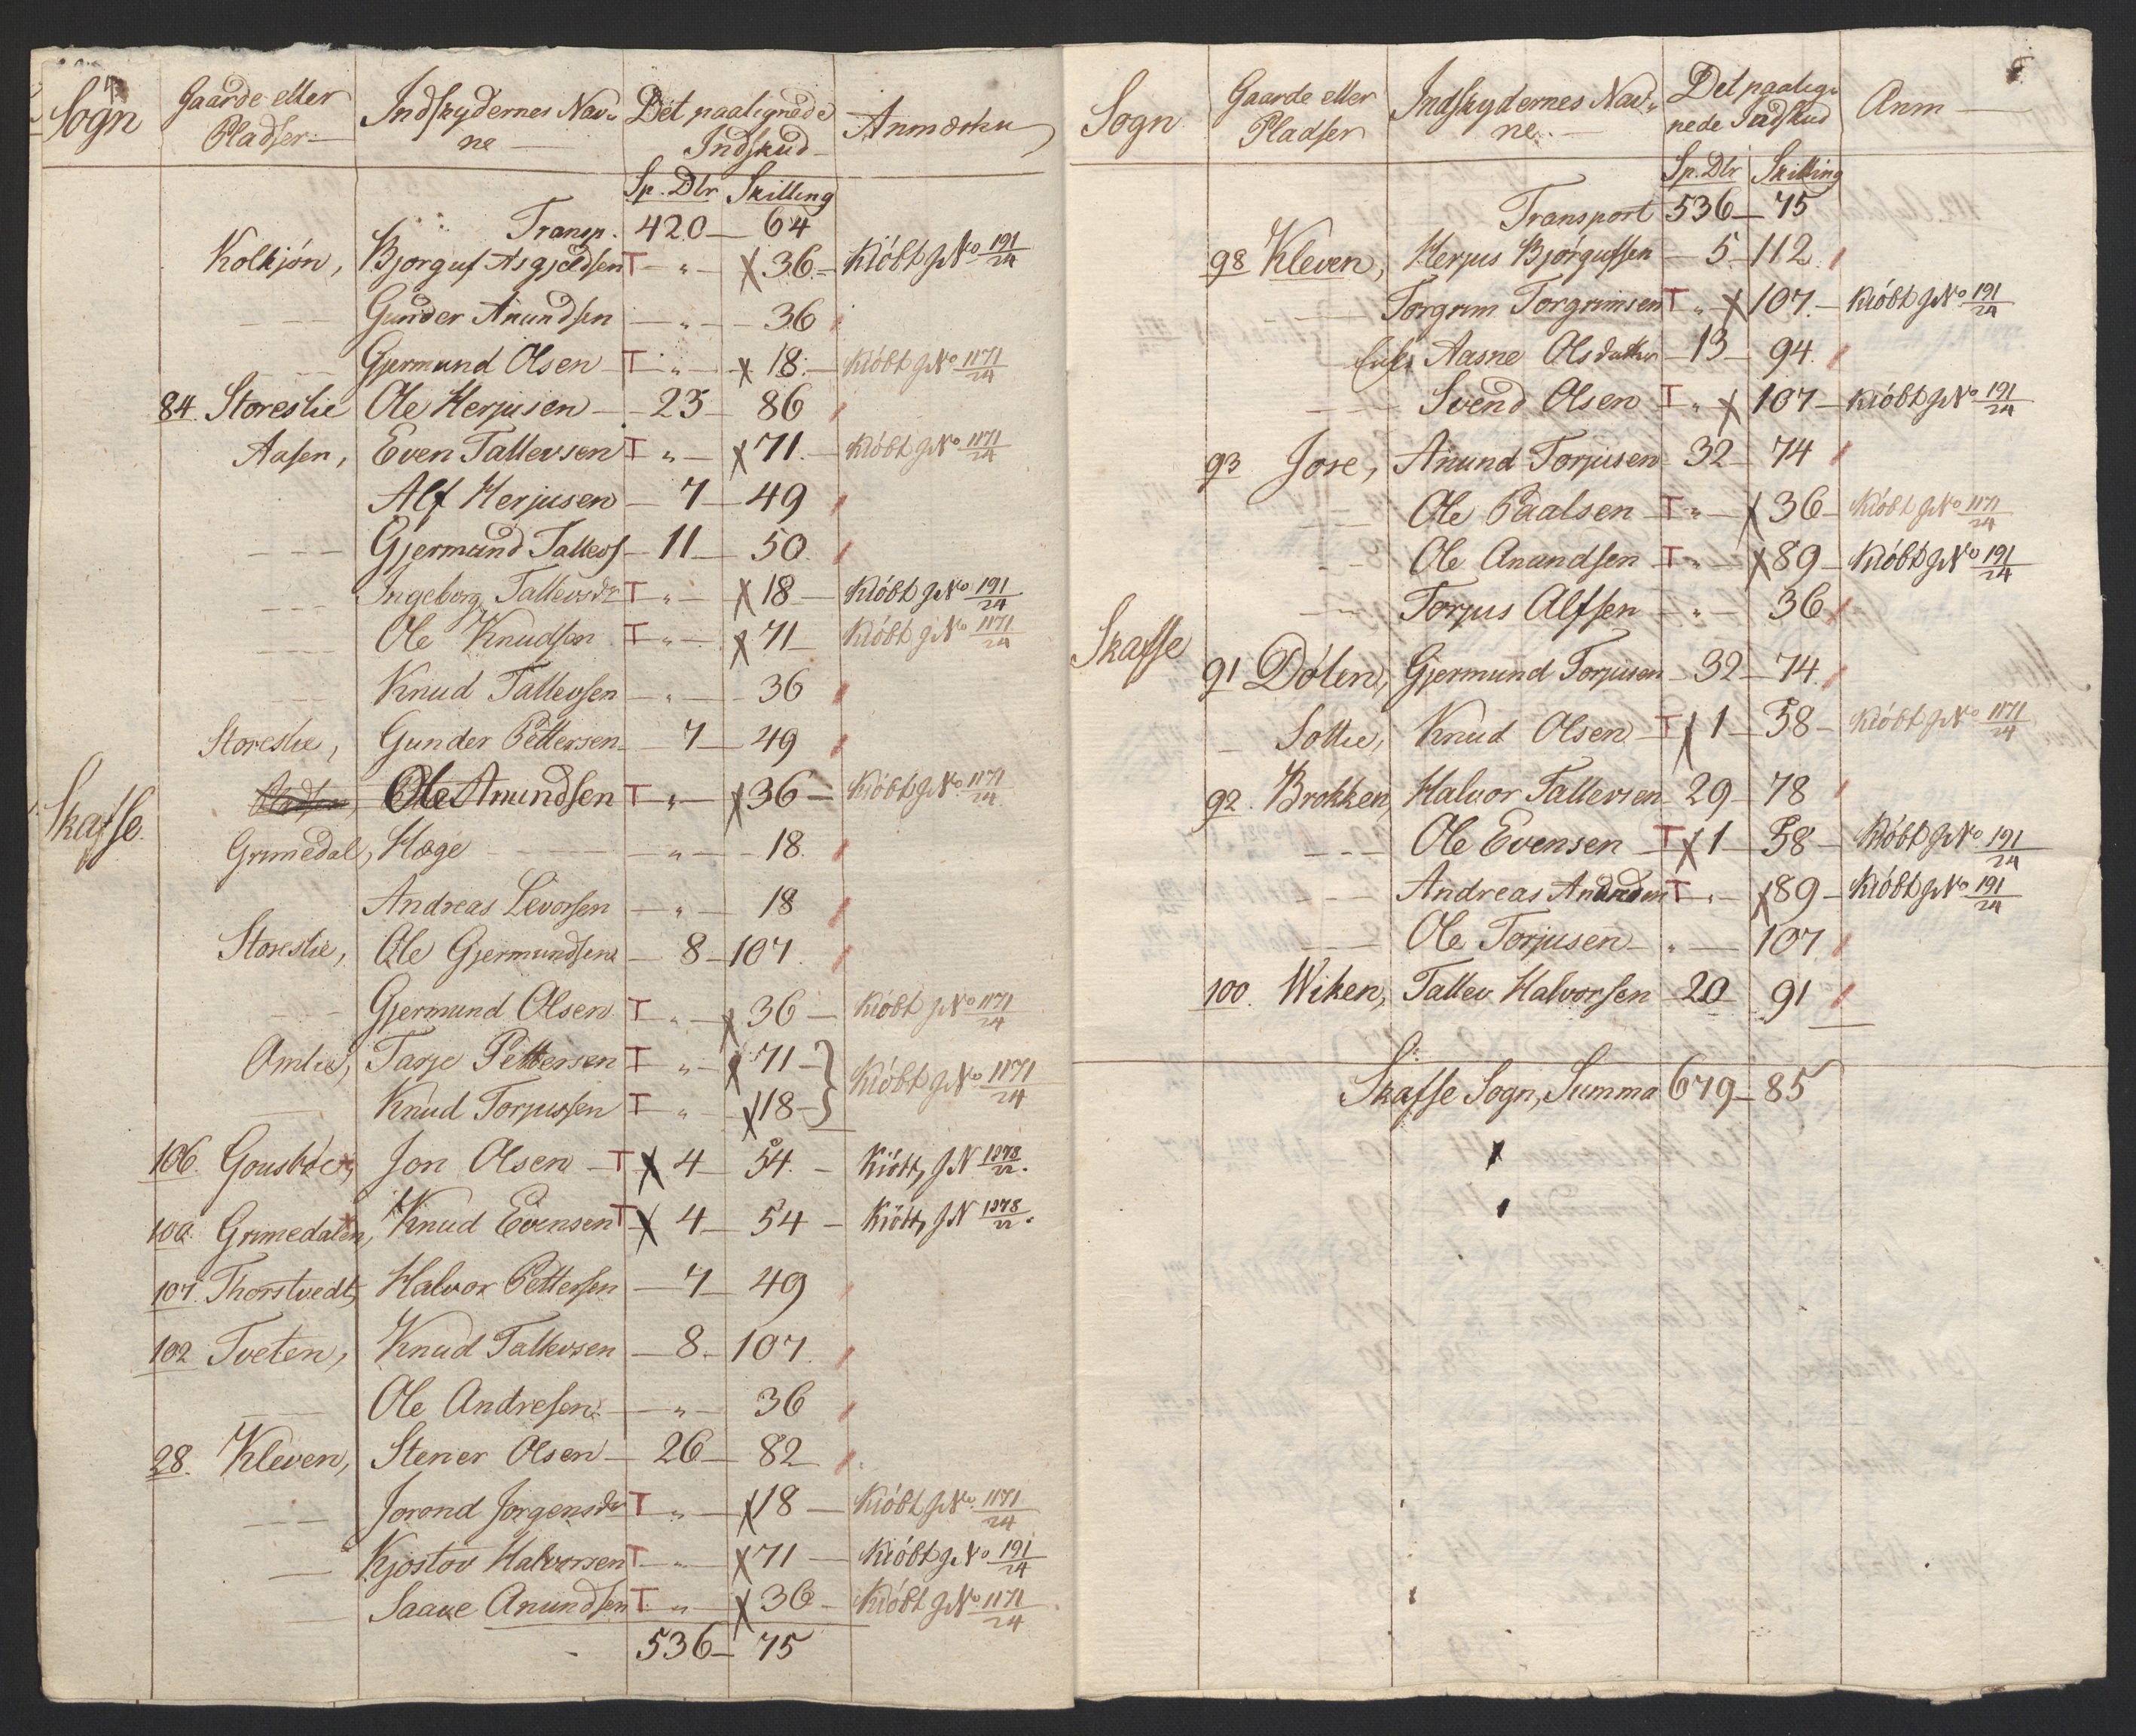 Sogn | Gaarde eller Pladser | Indskydernes Navne | Det paalignede Indskud | Anmærkn
Sp. Dlr | Skilling
Transp. 420 — 64
Kolkjön, Bjorguf Asgjeldsen T — „ — X 36 — Kiöbt J No 191/24
— Gunder Anundsen — „ — 36
— Gjermund Olsen T „ — X 18 — Kiöbt J No 1171/24
84. Storeslie Ole Herjusen — 23 — 86
Aasen, Even Tallevsen T „ — X 71 — Kiöbt J No 1171/24
Alf Herjusen — 7 — 49
— Gjermund Tallevs — 11 — 50
— Ingeborg Tallevsdr T „ — X 18 — Kiöbt J No 191/24
— Ole Knudsen T „ — X 71 — Kiöbt J No 1171/24
— Knud Tallevsen — „ — 36
Storeslie, Gunder Pettersen — 7 — 49
Ole Anundsen T „ — X 36 — Kiöbt J No 1171/24
Skafse.
Grimedal, Hæge — „ — 18
Andreas Levorsen — „ — 18
Storeslie, Ole Gjermundsen — 8 — 107
— Gjermund Olsen T „ — X 36 — Kiöbt J No 1171/24
Omlie, Tarje Pettersen T „ — X 71 —
— Knud Torjussen T „ — X 18 — } Kiöbt J No 1171/24
106. Gousböe, Jon Olsen T X 4 — 54 — Kiött, J N 1278/22.
100. Grimedalen, Knud Evensen T X 4 — 54 — Kiött, J N 1278/22.
107. Thorstvedt, Halvor Pettersen — 7 — 49
102 Tveten, Knud Tallevsen — 8 — 107
— Ole Andresen — „ — 36
28. Kleven, Stener Olsen — 26 — 82
— Jorond Jorgensdr T „ — X 18 — Kiöbt J No 1171/24
— Kjostov Halvorsen T „ — X 71 — Kiöbt J No 191/24
— Saave Anundsen T „ — X 36 — Kiöbt J No 1171/24
536 — 75
Sogn | Gaarde eller Pladser | Indskydernes Navne | Det paalignede Indskud | Anm
Sp. Dlr | Skilling
Transport 536 — 75
98 Kleven, Herjus Bjorgufsen — 5 — 112
— Torgrim Torgrimsen T „ X 107 — Kiöbt J No 191/24
Enke Aasne Olsdatter — 13 — 94
— Svend Olsen T „ X 107 — Kiöbt J No 191/24
93 Jore, Anund Torjusen — 32 — 74
— Ole Paalsen T „ — X 36 — Kiöbt J No 1171/24
— Ole Anundsen T „ — X 89 — Kiöbt J No 191/24
— Torjus Alfsen — „ — 36
Skafse
91 Dölen, Gjermund Torjusen — 32 — 74
— Sollie, Knud Olsen T X 1 — 58 — Kiöbt J No 1171/24
92. Brokken, Halvor Tallevsen — 29 — 78
— Ole Evensen T X 1 — 58 — Kiöbt J No 191/24
— Andreas Anundsen T „ — X 89 — Kiöbt J No 191/24
— Ole Torjusen — „ — 107
100. Wiken, Tallev Halvorsen — 20 — 91
Skafse Sogn, Summa 679 — 85